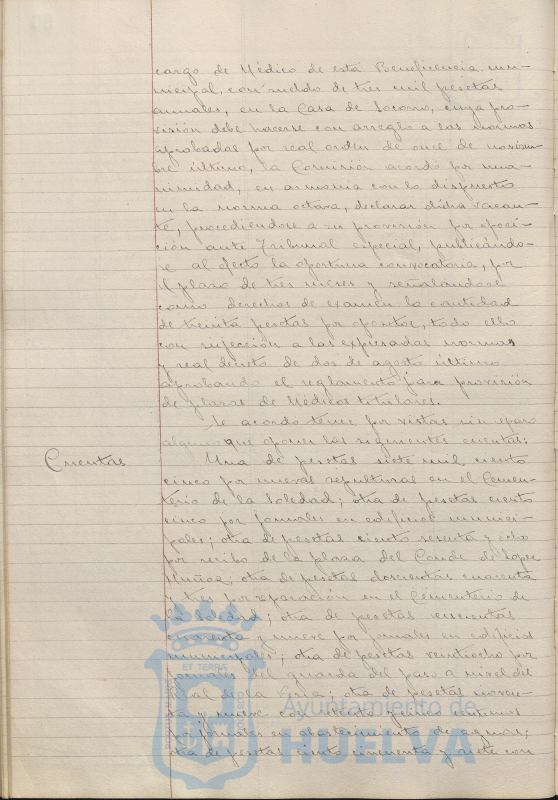 cargo de Médico de esta Beneficencia mu-
nicipal, con sueldo de tres mil pesetas
anuales, en la Casa de Socorro, cuya pro-
visión debe hacerse con arreglo a las normas
aprobadas por real orden de once de noviem-
bre último, la Comisión acordó por una-
nimidad, en armonía con lo dispuesto
en la norma octava, declarar dicha vacan-
te, procediéndose a su provisión por oposi-
ción ante Tribunal especial, publicándo-
se al efecto la oportuna convocatoria, por
el plazo de tres meses y señalándose
como derechos de examen la cantidad
de treinta pesetas por opositor, todo ello
con sujeción a las expresadas normas
y real decreto de dos de agosto último
aprobando el reglamento para provisión
de plazas de Médicos titulares.
Se acordó tener por vistas sin reparo
alguno que oponer las siguientes cuentas:
Cuentas
Una de pesetas siete mil ciento
cinco por nuevas sepulturas en el Cemen-
terio de la Soledad; otra de pesetas ciento
cinco por jornales en edificios munici-
pales; otra de pesetas ciento sesenta y ocho
por recibo de la plaza del Conde de López
Muñoz; otra de pesetas doscientas cuarenta
y tres por reparación en el Cementerio de
la Soledad; otra de pesetas seiscientas
cuarenta y nueve por jornales en edificios
municipales; otra de pesetas veintiocho por
jornales del guarda del paso a nivel del
final de la Vega; otra de pesetas noven-
ta y nueve con céntimos
por jornales en abastecimiento de aguas;
otra de pesetas ciento cincuenta y siete con
ET TERRÆ
Ayuntamiento de
HUELVA